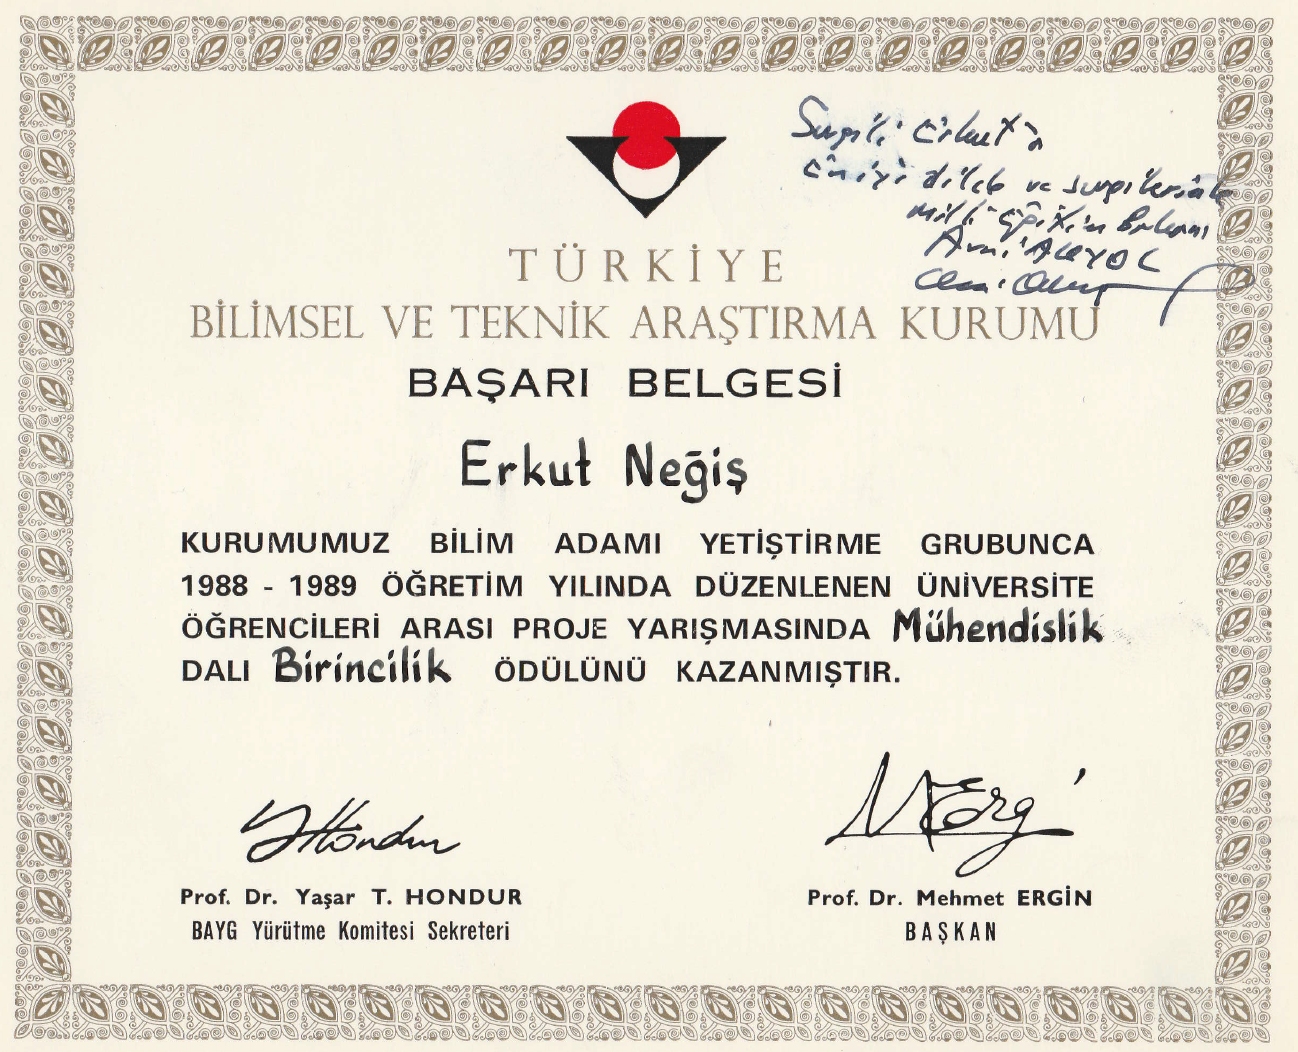 Sevgili Erkut'a
en iyi dilek ve sevgilerimle
Milli Eğitim Bakanı
Avni AKYOL
TÜRKİYE
BİLİMSEL VE TEKNİK ARAŞTIRMA KURUMU
BAŞARI BELGESİ
Erkut Neğiş
KURUMUMUZ BİLİM ADAMI YETİŞTİRME GRUBUNCA
1988 - 1989 ÖĞRETİM YILINDA DÜZENLENEN ÜNİVERSİTE
ÖĞRENCİLERİ ARASI PROJE YARIŞMASINDA Mühendislik
DALI Birincilik ÖDÜLÜNÜ KAZANMIŞTIR.
Prof. Dr. Yaşar T. HONDUR
BAYG Yürütme Komitesi Sekreteri
Prof. Dr. Mehmet ERGİN
BAŞKAN